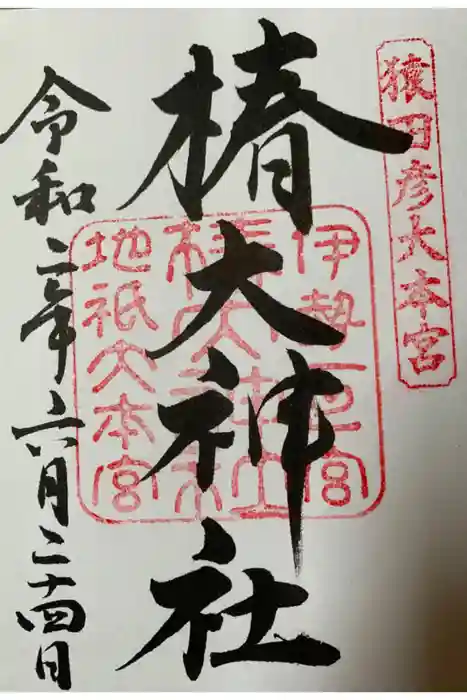 猿田彦大本宮
椿大神社
伊勢一宮
椿大神社
地祇大本宮
令和二年六月二十四日